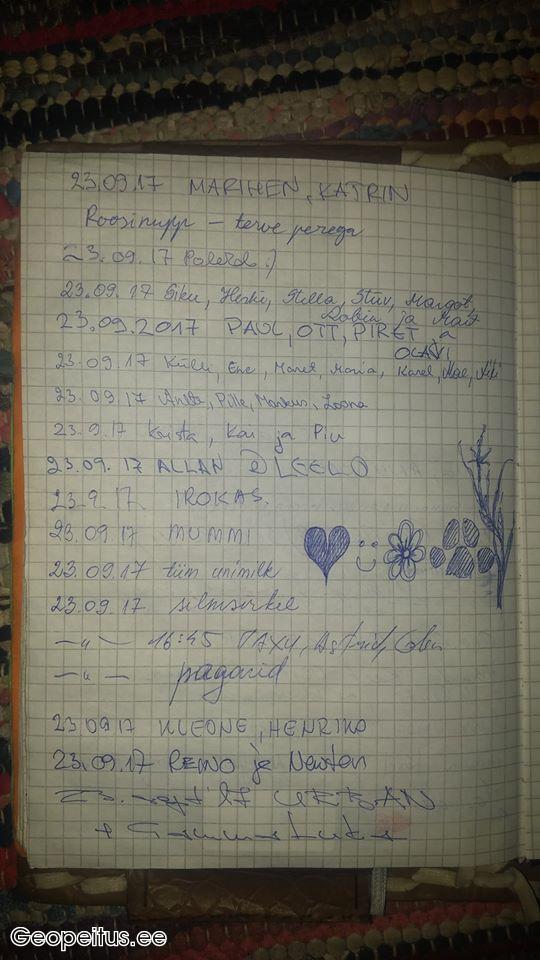 23.09.17 MARIHEN, KATRIN
Roosinupp – terve perega
23.09.17 :)
23.09.17 Siku, Heiki, Stella, Stüv, Margot,
Robin ja Mait
23.09.2017 PAUL, OTT, PIRET ja
OLAVI
23.09.17 Külli, Ene, Maret, Maria, Karel,
23.09.17 Anette, Pille, Markus, Loona
23.9.17 Krista, Kai ja Piu
23.09.17 ALLAN @ LEELO
23.9.17. IROKAS.
23.09.17 MUMMI
23.09.17 tiim unimilk
23.09.17 silmsirkel
—"— 16:45 TAXY, Astrid,
—"— pagarid
23 09 17 KLEONE, HENRIKO
23.09.17 REMO je Newton
23. sept '17 URBAN
+
Geopeitus.ee